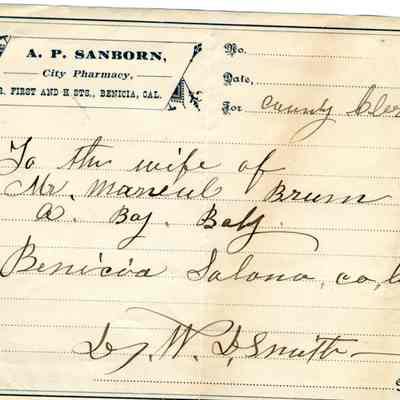 A. P. SANBORN,
City Pharmacy,
R. FIRST AND H STS., BENICIA, CAL.
No.
Date,
For County Cler
To the wife of
Mr. Manuel Brum
a. Boy. Baby.
Benicia Solano, co,
Dr. W. D. Smith